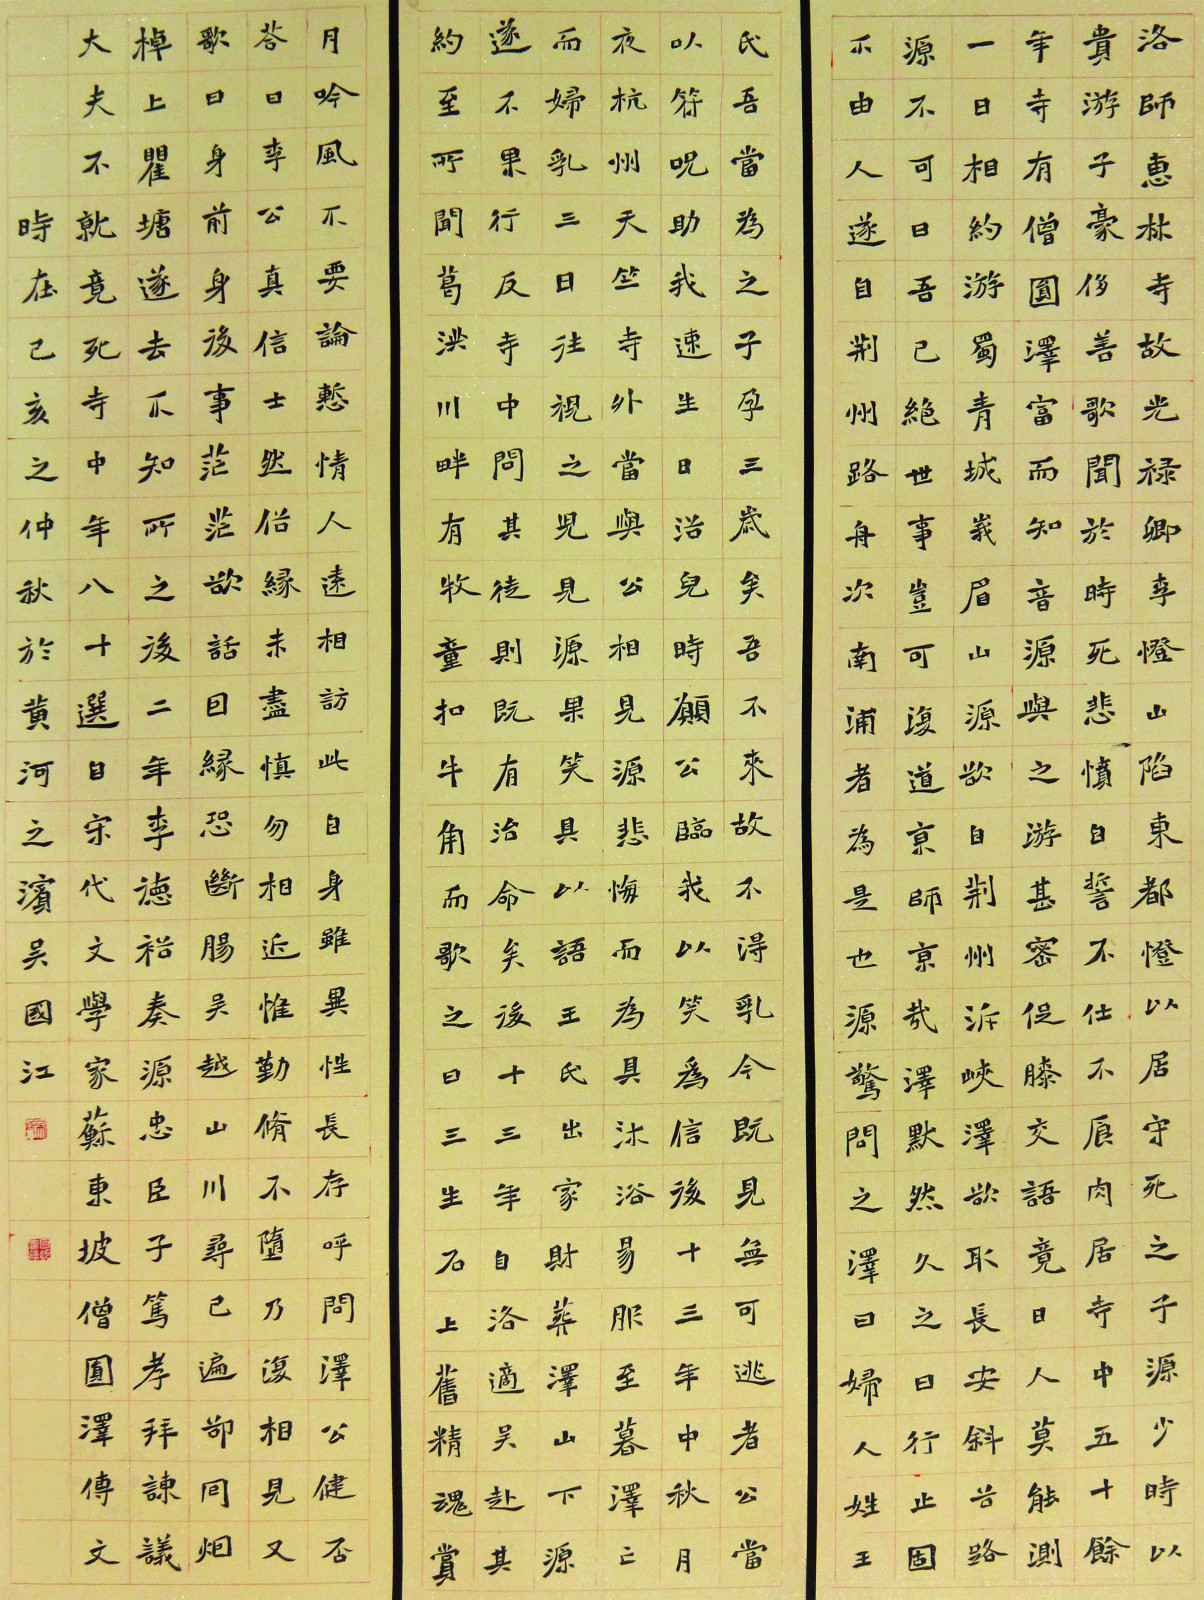 洛師惠林寺故光禄卿李憕山陷東都憕以居守死之子源少時以
貴游子豪侈善歌聞於時死悲憤自誓不仕不肉居寺中五十餘
年寺有僧圓澤富而知音源與之游甚密促膝交語竟日人莫能測
一日相約游蜀青城峩眉山源欲自荆州泝峽澤欲取長安斜谷路
源不可曰吾已絕世事豈可復道京師京哉澤默然久之曰行止固
不由人遂自荆州路舟次南浦者為是也源驚問之澤曰婦人姓王
氏吾當為之子孕三歲矣吾不來故不得乳今既見無可逃者公當
以符呪助我速生日浴兒時願公臨我以笑為信後十三年中秋月
夜杭州天竺寺外當與公相見源悲悔而為具沐浴易服至暮澤亡
而婦乳三日往視之兒見源果笑具以語王氏出家財葬澤山下源
遂不果行反寺中問其徒則既有治命矣後十三年自洛適吳赴其
約至所聞葛洪川畔有牧童扣牛角而歌之曰三生石上舊精魂賞
月吟風不要論慙情人遠相訪此自身雖異性長存呼問澤公健否
答曰李公真信士然俗緣未盡慎勿相近惟勤脩不墮乃復相見又
歌曰身前身後事茫茫欲話因緣恐斷腸吳越山川尋已遍卻回烟
棹上瞿塘遂去不知所之後二年李德裕奏源忠臣子篤孝拜諫議
大夫不就竟死寺中年八十選自宋代文學家蘇東坡僧圓澤傳文
時在己亥之仲秋於黃河之濱吳國江